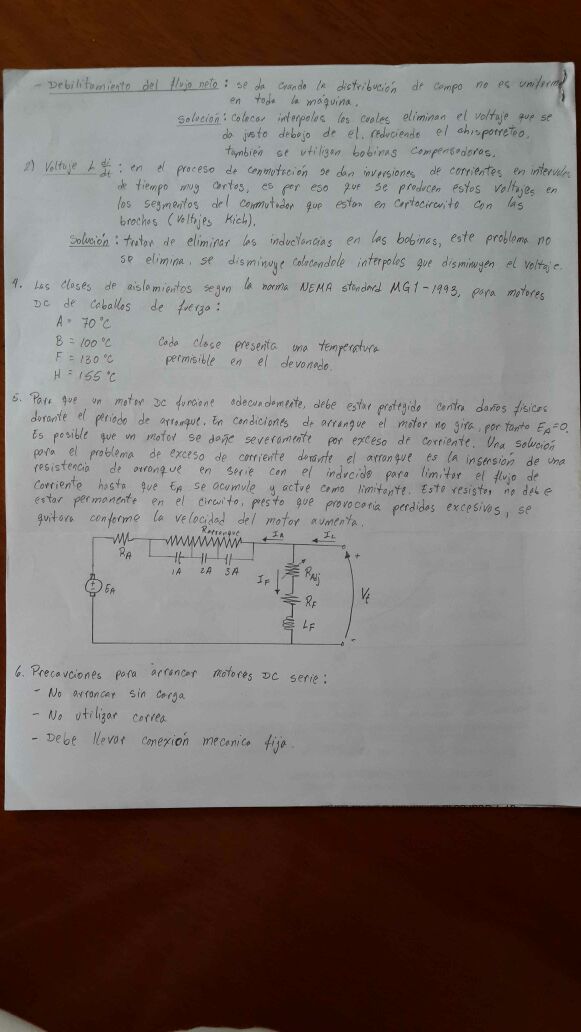 - Debilitamiento del flujo neto : se da cuando la distribución de campo no es uniforme
en toda la máquina.
Solución : Colocar interpolos los cuales eliminan el voltaje que se
da justo debajo de el, reduciendo el chisporreteo.
también se utilizan bobinas compensadoras.
2) Voltaje L di/dt : en el proceso de conmutación se dan inversiones de corrientes en intervalos
de tiempo muy cortos, es por eso que se producen estos voltajes en
los segmentos del conmutador que estan en cortocircuito con las
brochas (Voltajes Kich).
Solución : tratar de eliminar las inductancias en las bobinas, este problema no
se elimina, se disminuye colocandole interpolos que disminuyen el voltaje.
4. Las clases de aislamientos segun la norma NEMA standard MG1-1993, para motores
DC de caballos de fuerza :
A = 70°C
B = 100°C Cada clase presenta una temperatura
F = 130°C permisible en el devanado.
H = 155°C
5. Para que un motor DC funcione adecuadamente, debe estar protegido contra daños fisicos
durante el periodo de arranque. En condiciones de arranque el motor no gira, por tanto EA=0.
Es posible que un motor se dañe severamente por exceso de corriente. Una solución
para el problema de exceso de corriente durante el arranque es la insersión de una
resistencia de arranque en serie con el inducido para limitar el flujo de
corriente hasta que EA se acumule y actue como limitante. Este resistor no debe
estar permanente en el circuito, puesto que provocaria perdidas excesivas, se
quitara conforme la velocidad del motor aumenta.
Rarranque IA IL
RA
1A 2A 3A
IF RAdj
+
EA
RF Vt
LF
-
6. Precauciones para arrancar motores DC serie :
- No arrancar sin carga
- No utilizar correa
- Debe llevar conexión mecanica fija.